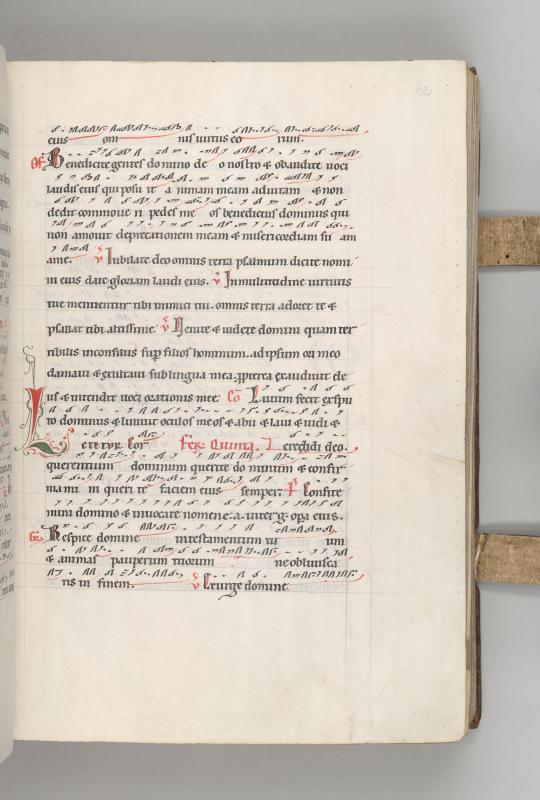 42
eius om nis uirtus eo rum.
Of Benedicite gentes domino de o nostro & obaudite uoci
laudis eius qui posu it a nimam meam ad uitam & non
dedit commoue ri pedes me os benedictus dominus qui
non amouit deprecationem meam & misericordiam su am
ame. V Iubilate deo omnis terra psalmum dicite nomi
ni eius date gloriam laudi eius. V In multitudine uirtutis
tue mentientur tibi inimici tui. omnis terra adoret te &
psallat tibi altissime. V Uenite & uidete domini quam ter
ribilis in consiliis sup filios hominum. ad ipsum ore meo
clamaui & exultaui sub lingua mea. ppterea exaudiuit de
us & intendit uoci orationis mee. Co Lutum fecit ex spu
to dominus & liniuit oculos meos & abii & laui & uidi &
credidi deo.
L etetur cor Fer Quinta.
querentium dominum querite dominum & confir
mamini queri te faciem eius semper. P Confite
mini domino & inuocate nomen e. a. inter g. opa eius.
Gr Respice domine in testamentum tu um
& animas pauperum tuorum ne obliuisca
ris in finem. V Exurge domine